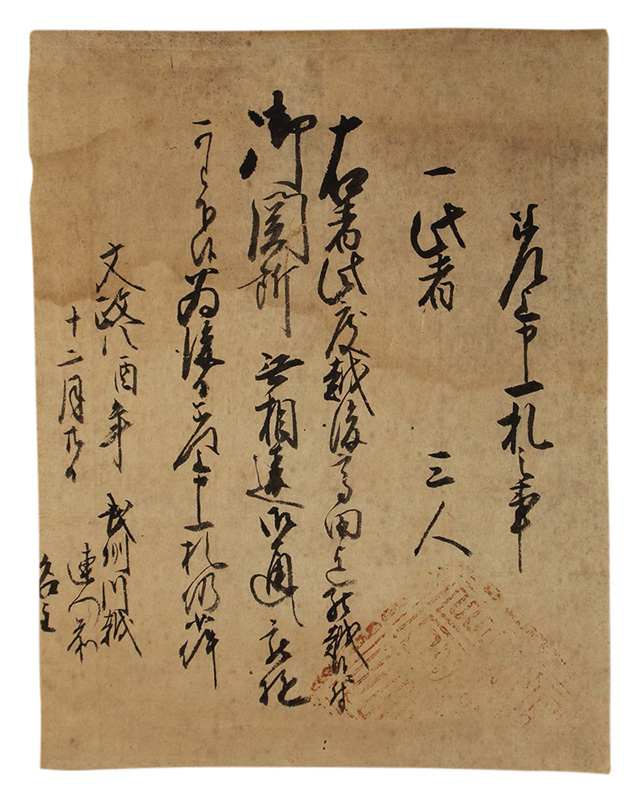 差上申一札之事
一此者 三人
右者此度越後高田迄罷越候付
御関所無相違御通被遊
可被下候為後日差上申一札仍如件
文政八酉年
十二月 日
武州川越
連雀
名主